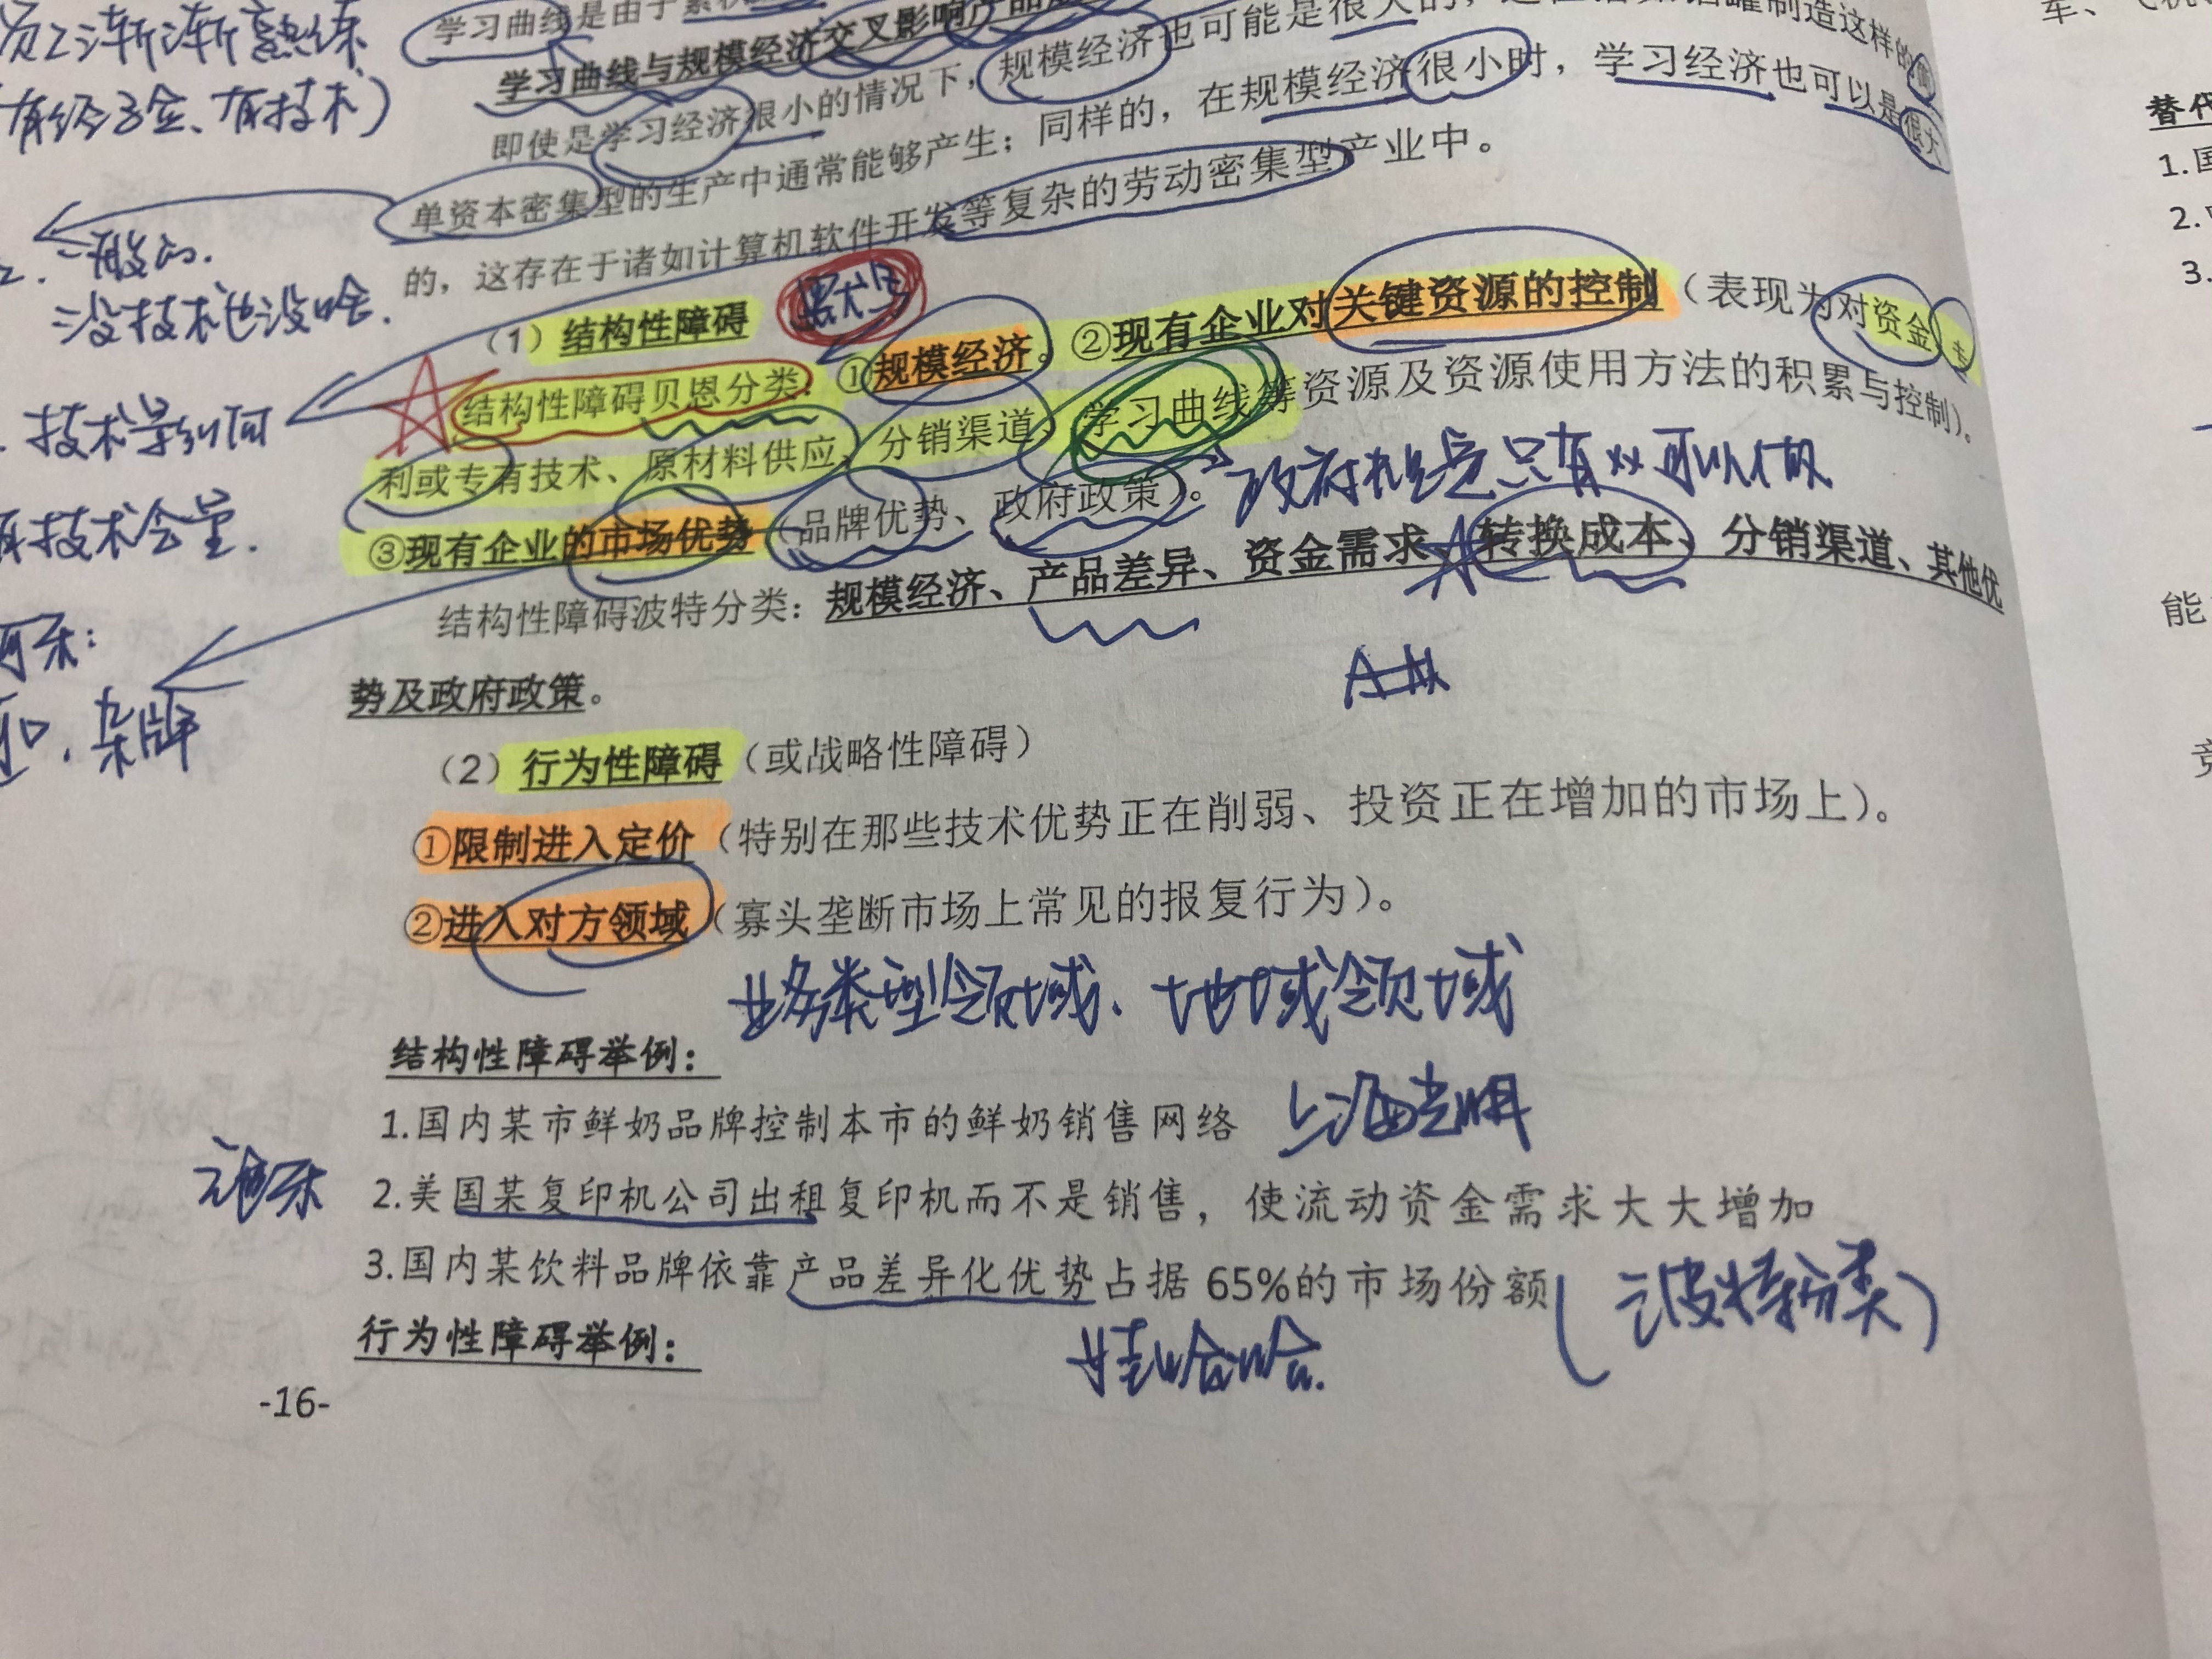 员工渐渐熟练
有资金、有技术）
学习曲线是由于累积
学习曲线与规模经济交叉影响产品
即使是学习经济很小的情况下，规模经济也可能是很大的，
罐制造这样的简
单资本密集型的生产中通常能够产生；同样的，在规模经济很小时，学习经济也可以是很大
的，这存在于诸如计算机软件开发等复杂的劳动密集型产业中。
一般的.
没技术也没啥.
技术
技术含量.
（1）结构性障碍
结构性障碍贝恩分类：①规模经济。②现有企业对关键资源的控制（表现为对资金、专
利或专有技术、原材料供应、分销渠道、学习曲线等资源及资源使用方法的积累与控制）。
③现有企业的市场优势（品牌优势、政府政策）。
只有xx可以做
结构性障碍波特分类：规模经济、产品差异、资金需求、转换成本、分销渠道、其他优
势及政府政策。
杂牌
（2）行为性障碍（或战略性障碍）
①限制进入定价（特别在那些技术优势正在削弱、投资正在增加的市场上）。
②进入对方领域（寡头垄断市场上常见的报复行为）。
业务类型领域、地域领域
结构性障碍举例：
1.国内某市鲜奶品牌控制本市的鲜奶销售网络
上海光明
2.美国某复印机公司出租复印机而不是销售，使流动资金需求大大增加
3.国内某饮料品牌依靠产品差异化优势占据 65%的市场份额
（波特分类）
娃哈哈.
行为性障碍举例：
-16-
替代
1.国
2.
3.
能